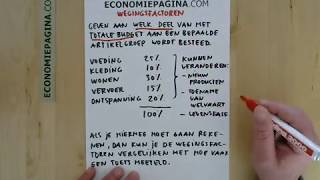 ECONOMIEPAGINA.COM
ECONOMIEPAGINA.COM
WEGINGSFACTOREN
GEVEN AAN WELK DEEL VAN HET
TOTALE BUDGET AAN EEN BEPAALDE
ARTIKELGROEP WORDT BESTEED.
VOEDING 25%
KLEDING 10%
WONEN 30%
VERVOER 15%
ONTSPANNING 20%
100%
KUNNEN
VERANDEREN:
- NIEUWE
PRODUCTEN
- TOENAME
VAN
WELVAART
- LEVENSFASE
ALS JE HIERMEE MOET GAAN REKE-
NEN, DAN KUN JE DE WEGINGSFAC-
TOREN VERGELIJKEN MET HOE VAAK
EEN TOETS MEETELD.